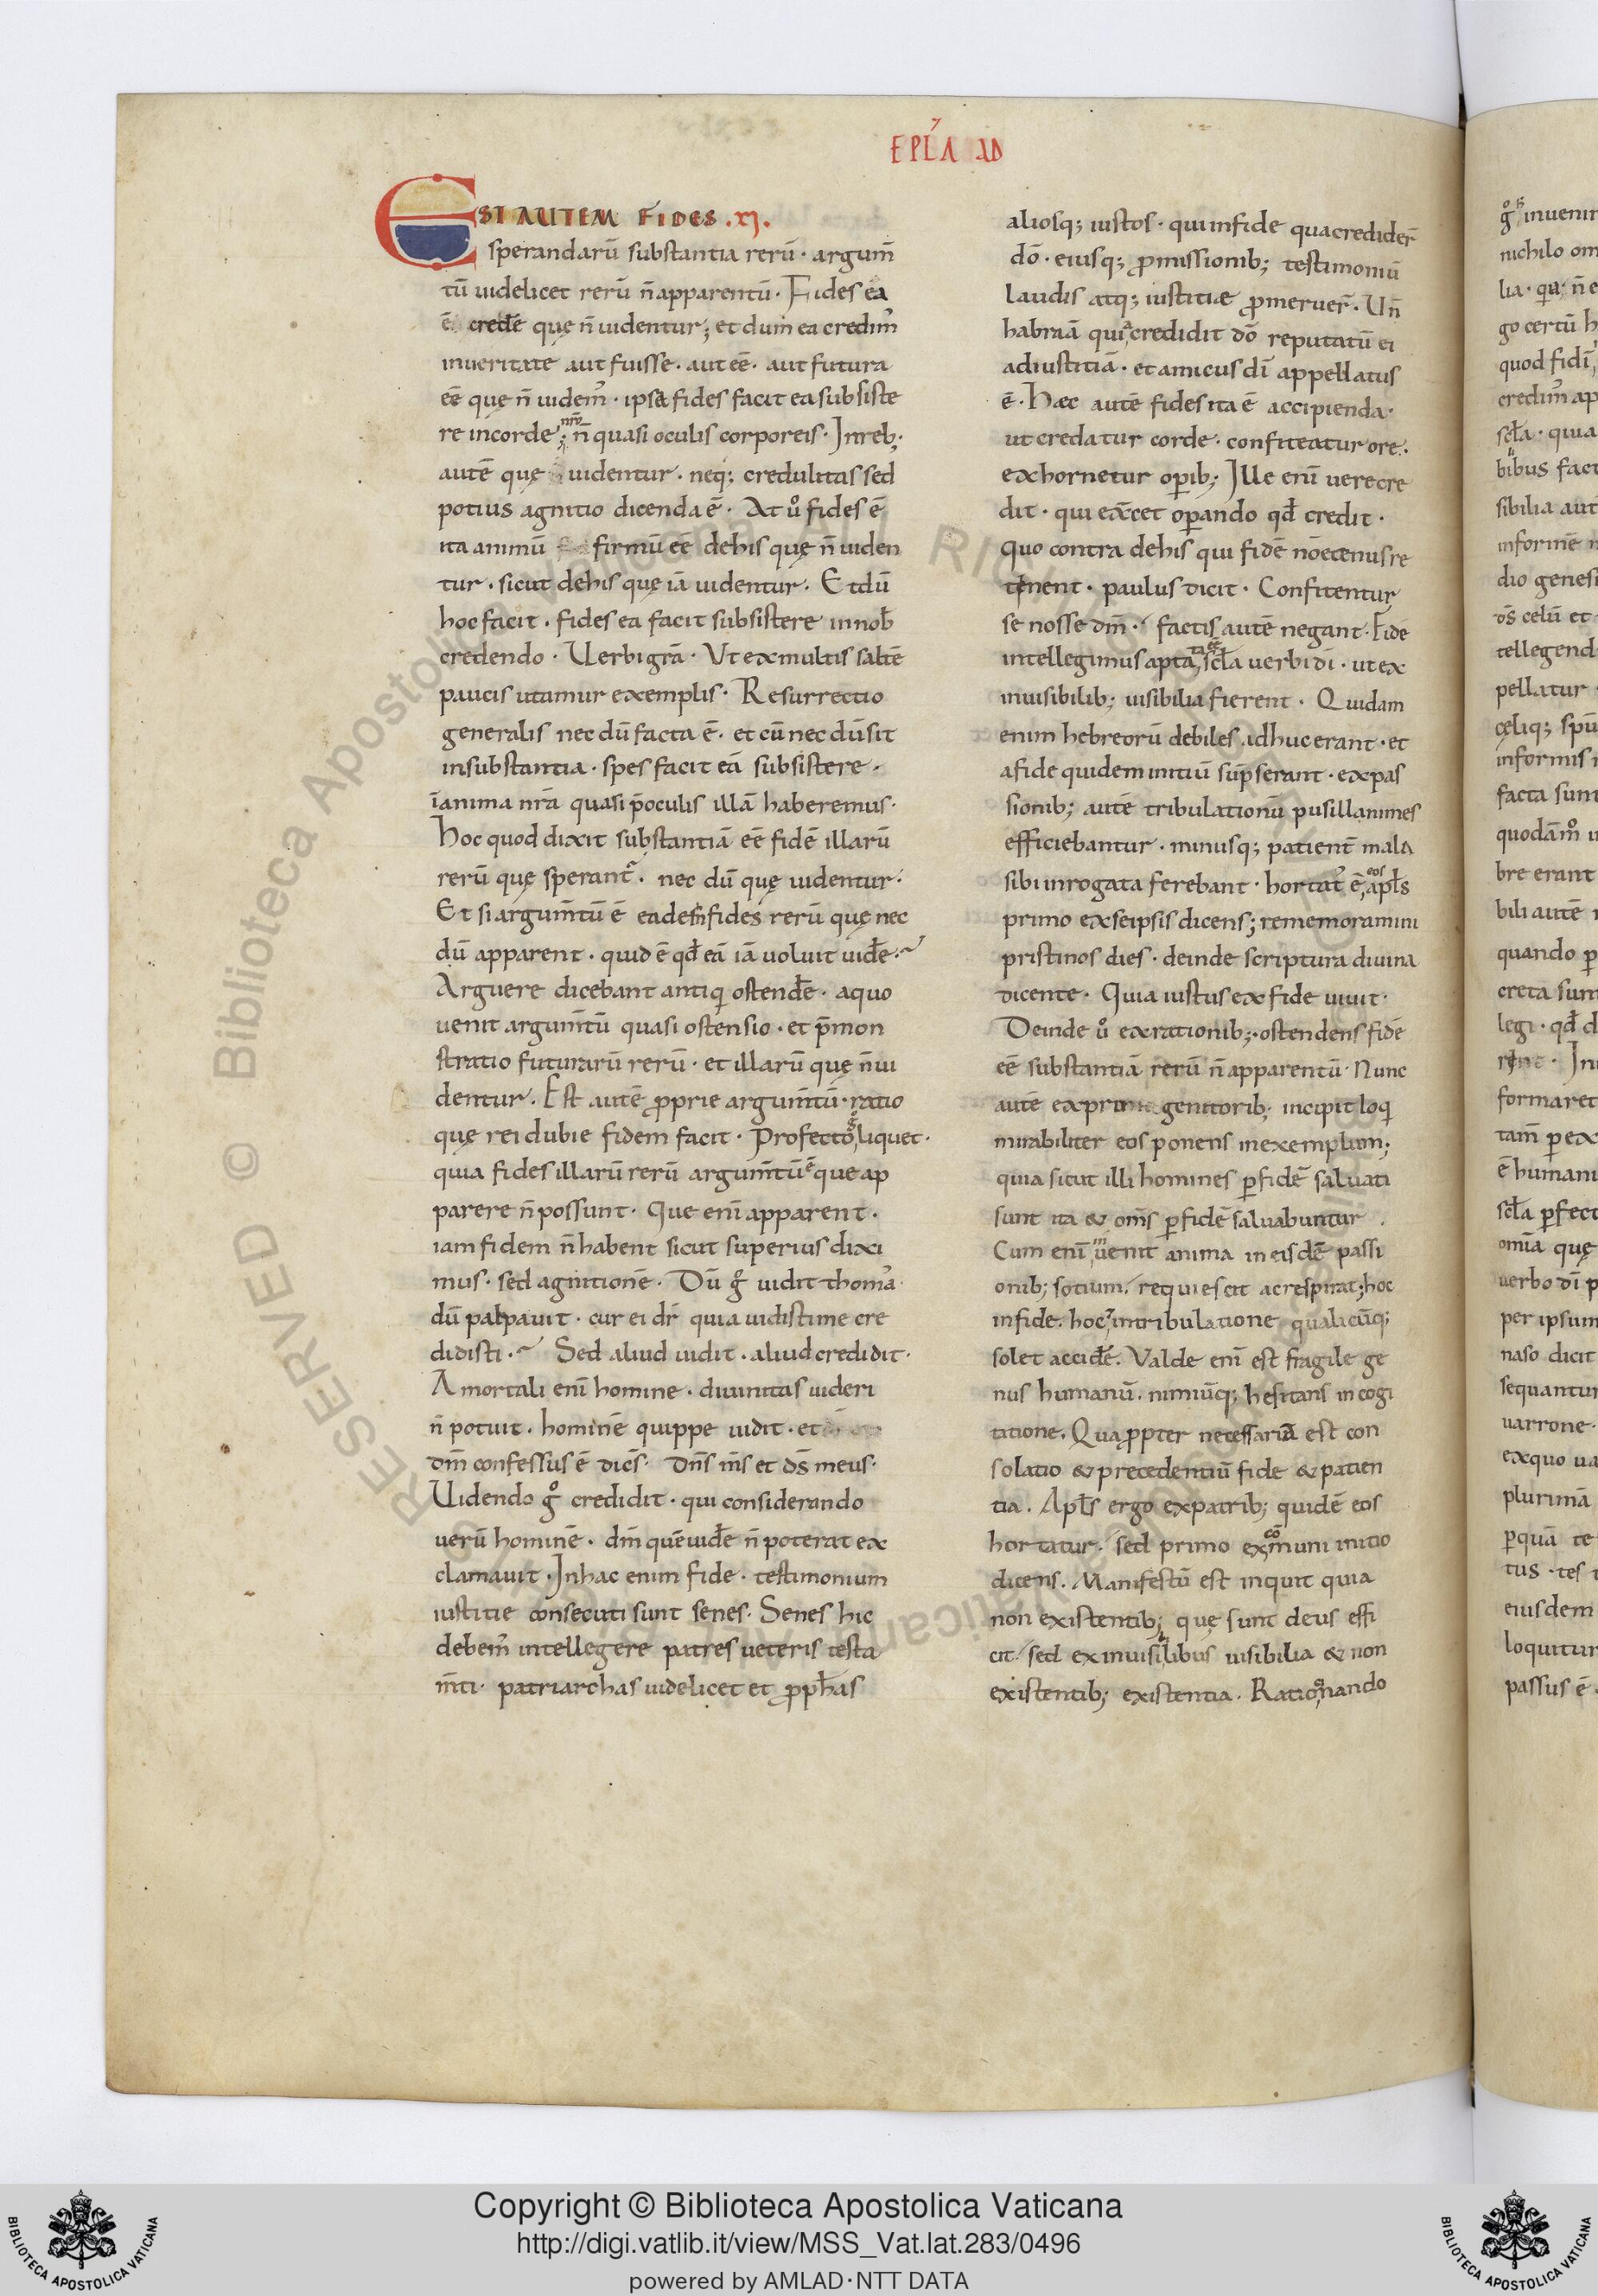 EPĽA AD
EST AUTEM FIDES .XI.
sperandarū substantia rerū · argum̄
tū uidelicet rerū n̄ apparentū · Fides ea
ē credēe que n̄ uidentur; et dum ea credim᾽
in ueritate aut fuisse · aut eē · aut futura
eē quę n̄ uidem᾽ · ipsa fides facit ea subsiste
re in corde nr̄o; n̄ quasi oculis corporeis · In reb;
autē quę uidentur · neq; credulitas sed
potius agnitio dicenda ē · At u᷎o fides ē
ita animū firmū eē de his quę n̄ uiden
tur · sicut de his quę iā uidentur · Et dū
hoc facit · fides ea facit subsistere in nob̄
credendo · Uerbi grā · Ut ex multis saltē
paucis utamur exemplis · Resurrectio
generalis nec dū facta ē · et cū nec dū sit
in substantia · spes facit eā subsistere ·
ī anima nr̄a quasi p̄ oculis illā haberemus ·
Hoc quod dixit substantiā eē fidē illarū
rerū quę sperant᾽ · nec dū quę uidentur ·
Et si argum̄tū ē eadem fides rerū quę nec
dū apparent · quid ē qd̄ eā iā uoluit uidēe ·~
Arguere dicebant antiqi ostendēe · a quo
uenit argum̄tū quasi ostensio · et p̄mon
stratio futurarū rerū · et illarū quę n̄ ui
dentur · Est autē ꝓprie argum̄tū · ratio
quę rei dubie fidem facit · Profecto g᷎ liquet ·
quia fides illarū rerū argum̄tū ē que ap
parere n̄ possunt · Que enī apparent ·
iam fidem n̄ habent sicut superius dixi
mus · sed agnitionē · Dū g᷎ uidit thoma᾽
dū palpauit · cur ei dr̄ quia uidisti me cre
didisti ·~ Sed aliud uidit · aliud credidit ·
A mortali enī homine · diuinitas uideri
n̄ potuit · hominē quippe uidit · et
dm̄ confessus ē dicēs · Dn̄s m̄s et ds̄ meus ·
Uidendo g᷎ credidit · qui considerando
uerū hominē · dm̄ quē uidēe n̄ poterat ex
clamauit · In hac enim fide · testimonium
iustitie consecuti sunt senes · Senes hic
debem᾽ intellegere patres ueteris testa
m̄ti · patriarchas uidelicet et ꝓph̄as
aliosq; iustos · qui in fide qua crediderr̄
dō · eiusq; ꝓmissionib; testimoniū
laudis atq; iustitiæ ꝓmeruer̄ · Un̄
habraā quia credidit dō reputatū ei
ad iustitiā · et amicus dī appellatus
ē · Hæc autē fides ita ē accipienda ·
ut credatur corde · confiteatur ore ·
exhornetur oꝑib; Ille enī uere cre
dit · qui exēcet oꝑando qd̄ credit ·
Quo contra de his qui fidē nōetenus re
tinent · paulus dicit · Confitentur
se nosse dm̄ · factis autē negant · Fide
intellegimus aptata eē scl̄a uerbi dī · ut ex
inuisibilib; uisibilia fierent · Quidam
enim hebreorū debiles adhuc erant · et
a fide quidem initiū sūpserant · ex pas
sionib; autē tribulationū pusillanimes
efficiebantur · minusq; patient᷎ mala
sibi inrogata ferebant · hortat᾽ ē eos apl̄s
primo ex seipsis dicens; rememoramini
pristinos dies · deinde scriptura diuina
dicente · Quia iustus ex fide uiuit ·
Deinde u᷎o ex rationib; · ostendens fidē
eē substantiā rerū n̄ apparentū · Nunc
autē ex primo genitorib; incipit loqi
mirabiliter eos ponens in exemplum;
quia sicut illi homines ꝑ fidē saluati
sunt ita & om̄s ꝑ fidē saluabuntur ·
Cum enī inuenit anima in eisdē passi
onib; sotium · requiescit ac respirat; hoc
in fide · hoc & in tribulatione qualicūq;
solet accidēe · Valde enī est fragile ge
nus humanū · nimiūq; hesitans in cogi
tatione · Qua ꝓpter necessaria est con
solatio & precedentiū fide & patien
tia · Apl̄s ergo ex patrib; quidē eos
hortatur · sed primo ex cōmuni initio
dicens · Manifestū est inquit quia
non existentib; quę sunt deus effi
cit / sed ex inuisibilibus uisibilia & non
existentib; existentia · Ratiocinando
Copyright © Biblioteca Apostolica Vaticana
http://digi.vatlib.it/view/MSS_Vat.lat.283/0496
powered by AMLAD·NTT DATA